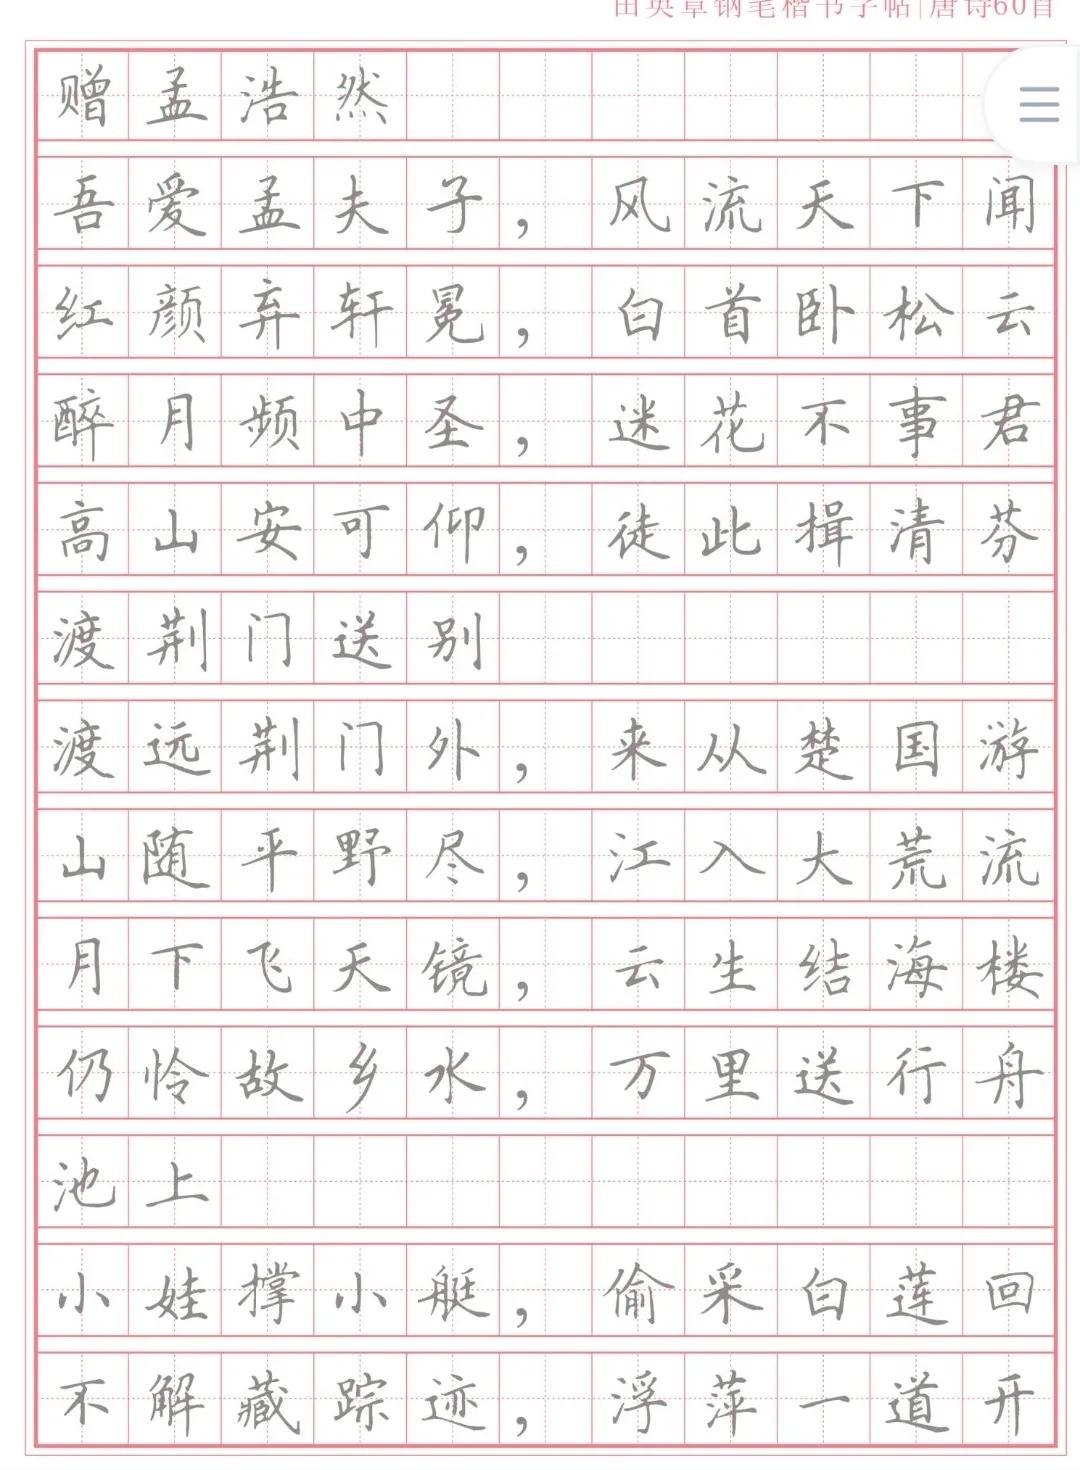 田英章钢笔楷书字帖|唐诗60首
赠孟浩然
吾爱孟夫子，风流天下闻
红颜弃轩冕，白首卧松云
醉月频中圣，迷花不事君
高山安可仰，徒此揖清芬
渡荆门送别
渡远荆门外，来从楚国游
山随平野尽，江入大荒流
月下飞天镜，云生结海楼
仍怜故乡水，万里送行舟
池上
小娃撑小艇，偷采白莲回
不解藏踪迹，浮萍一道开